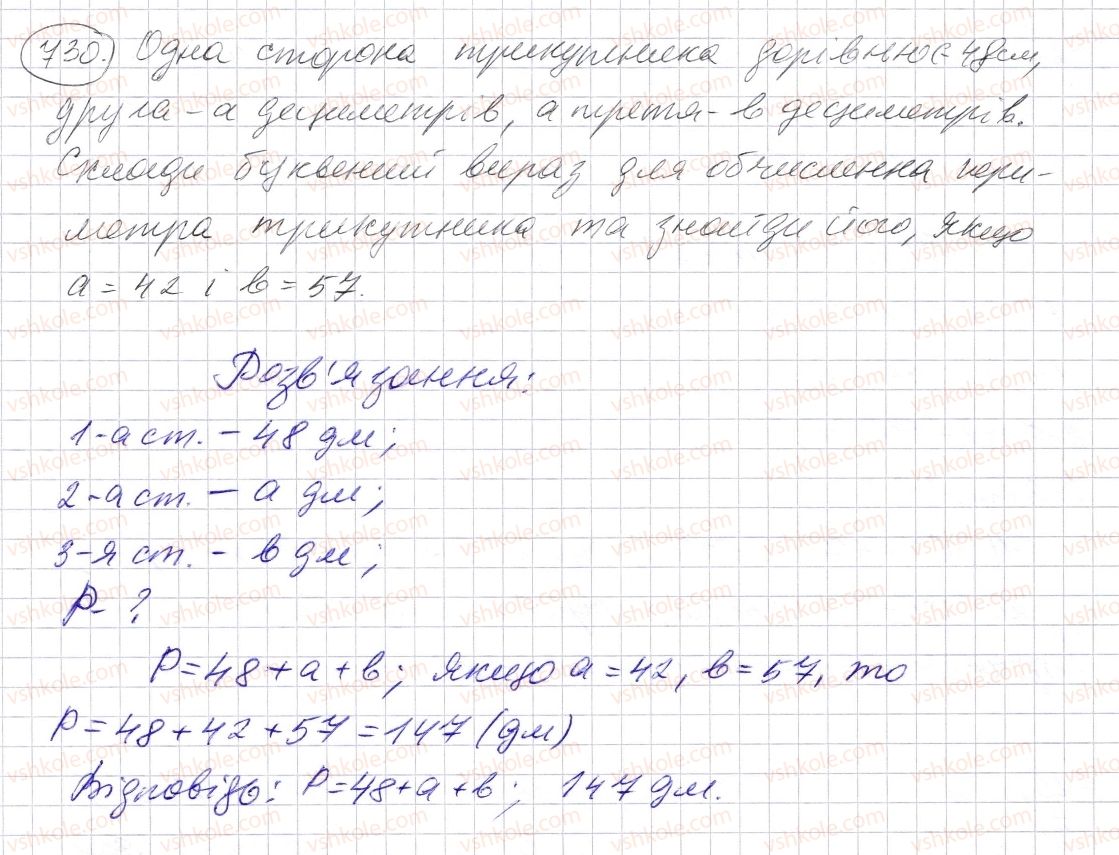 730. Одна сторона трикутника дорівнює 4дсм,
друга - а дециметрів, а третя - в дециметрів.
Склади буквений вираз для обчислення пери-
метра трикутника та знайди його, якщо
а = 42 і в = 57.
Розв'язання:
1-а ст. - 48 дм;
2-а ст. - а дм;
3-я ст. - в дм;
Р - ?
Р = 48 + а + в; якщо а = 42, в = 57, то
Р = 48 + 42 + 57 = 147 (дм)
Відповідь: Р = 48 + а + в; 147 дм.
vshkole.com